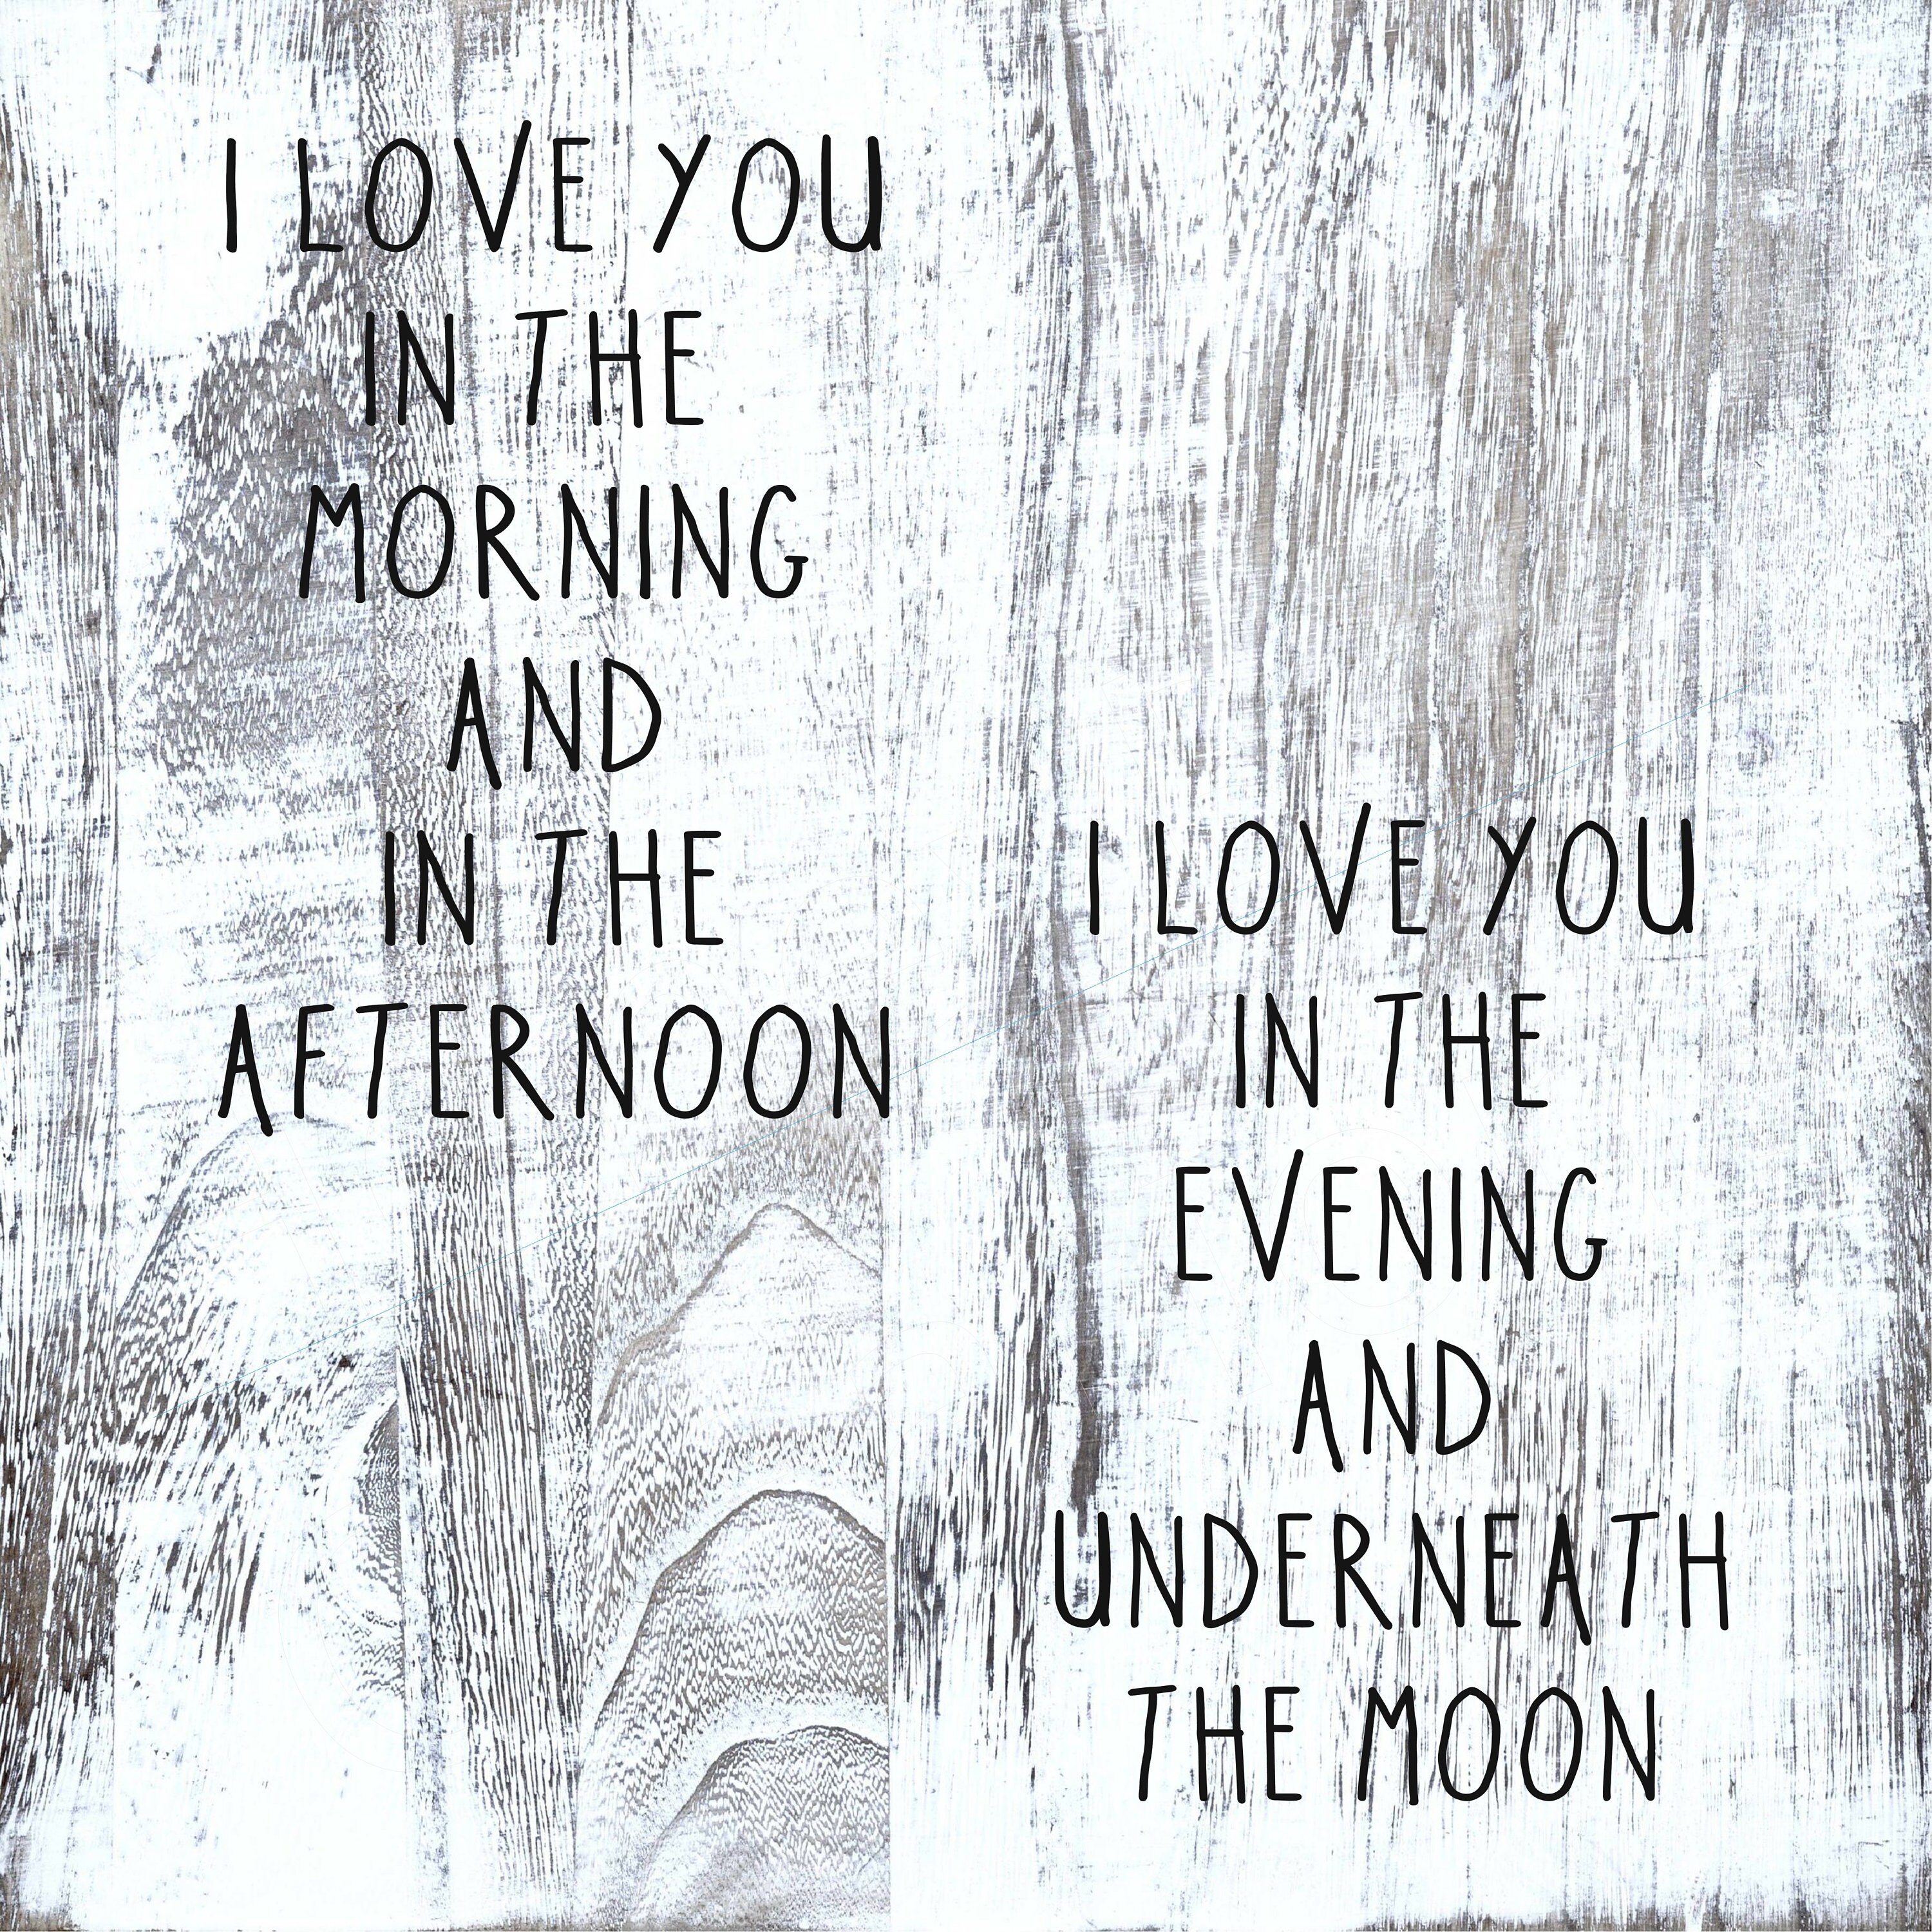 I LOVE YOU
IN THE
MORNING
AND
IN THE
AFTERNOON
I LOVE YOU
IN THE
EVENING
AND
UNDERNEATH
THE MOON